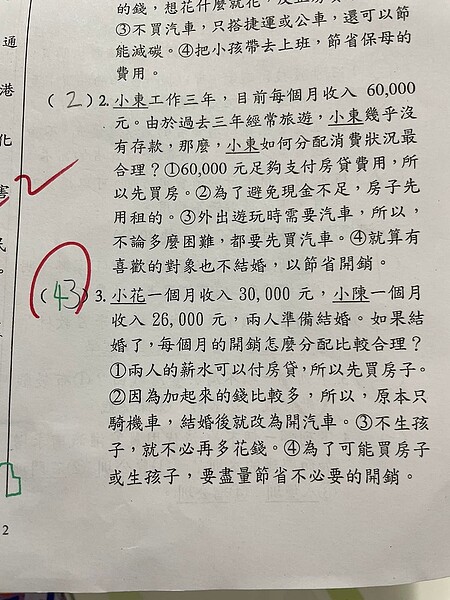 的錢，想花什麼就花
③不買汽車，只搭捷運或公車，還可以節
能減碳。④把小孩帶去上班，節省保母的
費用。
(2) 2. 小東工作三年，目前每個月收入 60,000
元。由於過去三年經常旅遊，小東幾乎沒
有存款，那麼，小東如何分配消費狀況最
合理？①60,000 元足夠支付房貸費用，所
以先買房。②為了避免現金不足，房子先
用租的。③外出遊玩時需要汽車，所以，
不論多麼困難，都要先買汽車。④就算有
喜歡的對象也不結婚，以節省開銷。
(43) 3. 小花一個月收入 30,000 元，小陳一個月
收入 26,000 元，兩人準備結婚。如果結
婚了，每個月的開銷怎麼分配比較合理？
①兩人的薪水可以付房貸，所以先買房子。
②因為加起來的錢比較多，所以，原本只
騎機車，結婚後就改為開汽車。③不生孩
子，就不必再多花錢。④為了可能買房子
或生孩子，要盡量節省不必要的開銷。
通
港
化
害
民
。
2